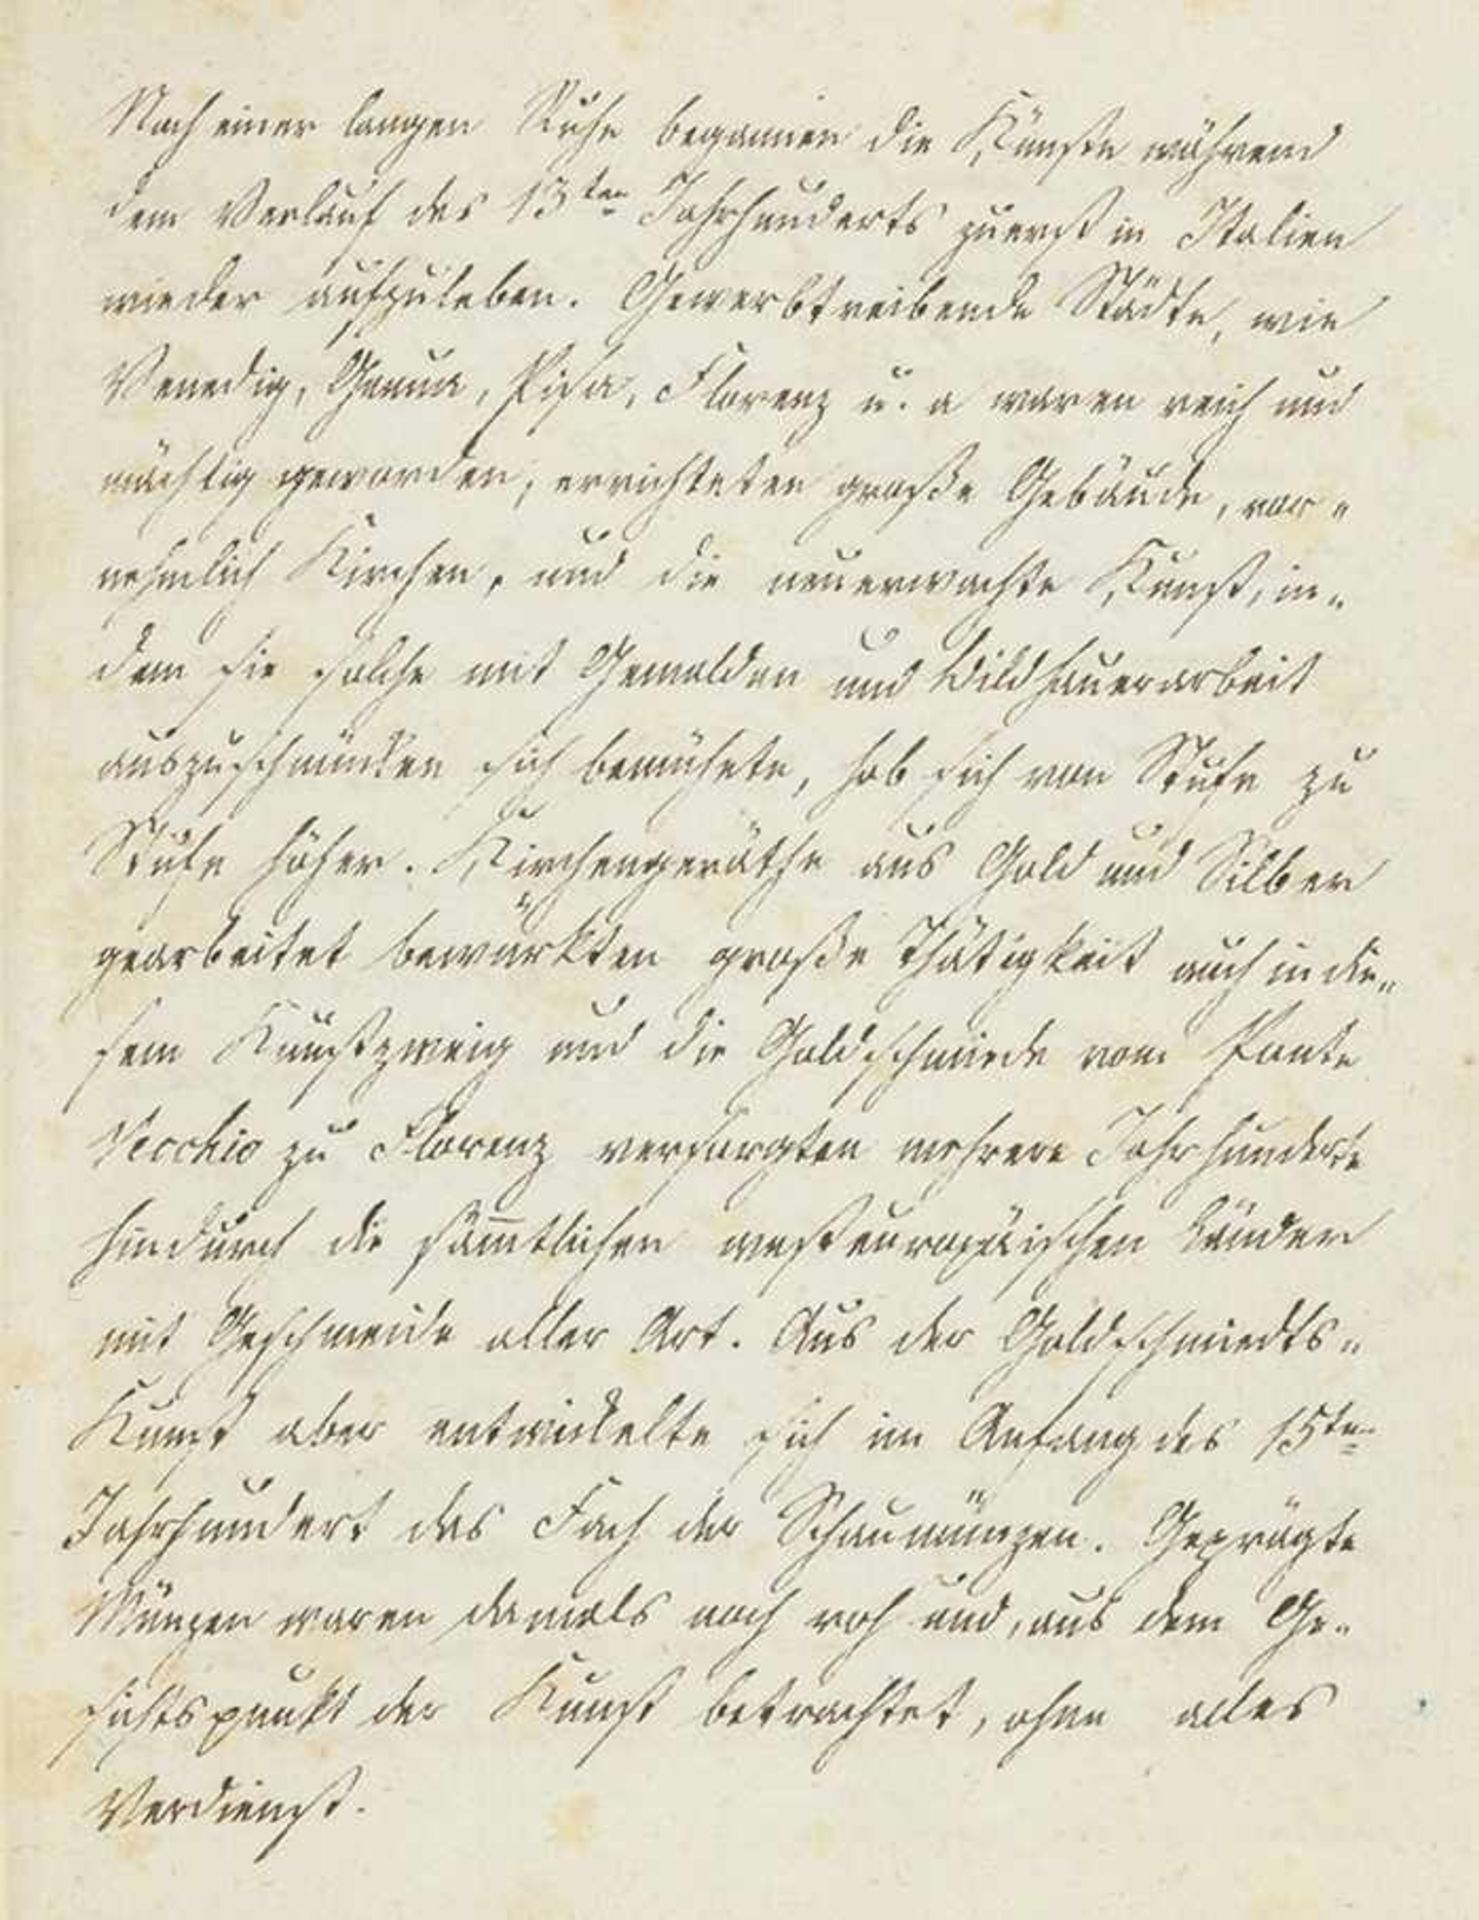 Nach einer langen Ruhe begannen die Künste während
dem Verlauf des 13ten Jahrhunderts zuerst in Italien
wieder aufzuleben. Gewerbtreibende Städte, wie
Venedig, Genua, Pisa, Florenz u. a waren reich und
mächtig geworden, errichteten große Gebäude, vor„
nehmlich Kirchen, und die neuerwachte Kunst, in„
dem sie solche mit Gemälden und Bildhauerarbeit
auszuschmücken sich bemühete, hob sich von Stufe zu
Stufe höher. Kirchengeräthe aus Gold und Silber
gearbeitet bewürkten große Thätigkeit auch in die„
sem Kunstzweig und die Goldschmiede vom Ponte
Vecchio zu Florenz versorgten mehrere Jahrhunderte
hindurch die sämmtlichen westeuropäischen Länder
mit Geschmeide aller Art. Aus der Goldschmiedts„
Kunst aber entwickelte sich im Anfang des 15ten
Jahrhundert das Fach der Schaumünzen. Geprägte
Münzen waren damals noch roh und, aus dem Ge„
sichtspunkt der Kunst betrachtet, ohne alles
Verdienst.